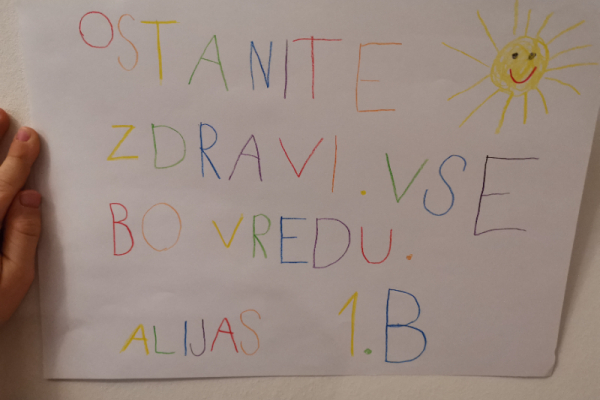 OSTANITE
ZDRAVI. VSE
BO VREDU.
ALIJAS 1.B